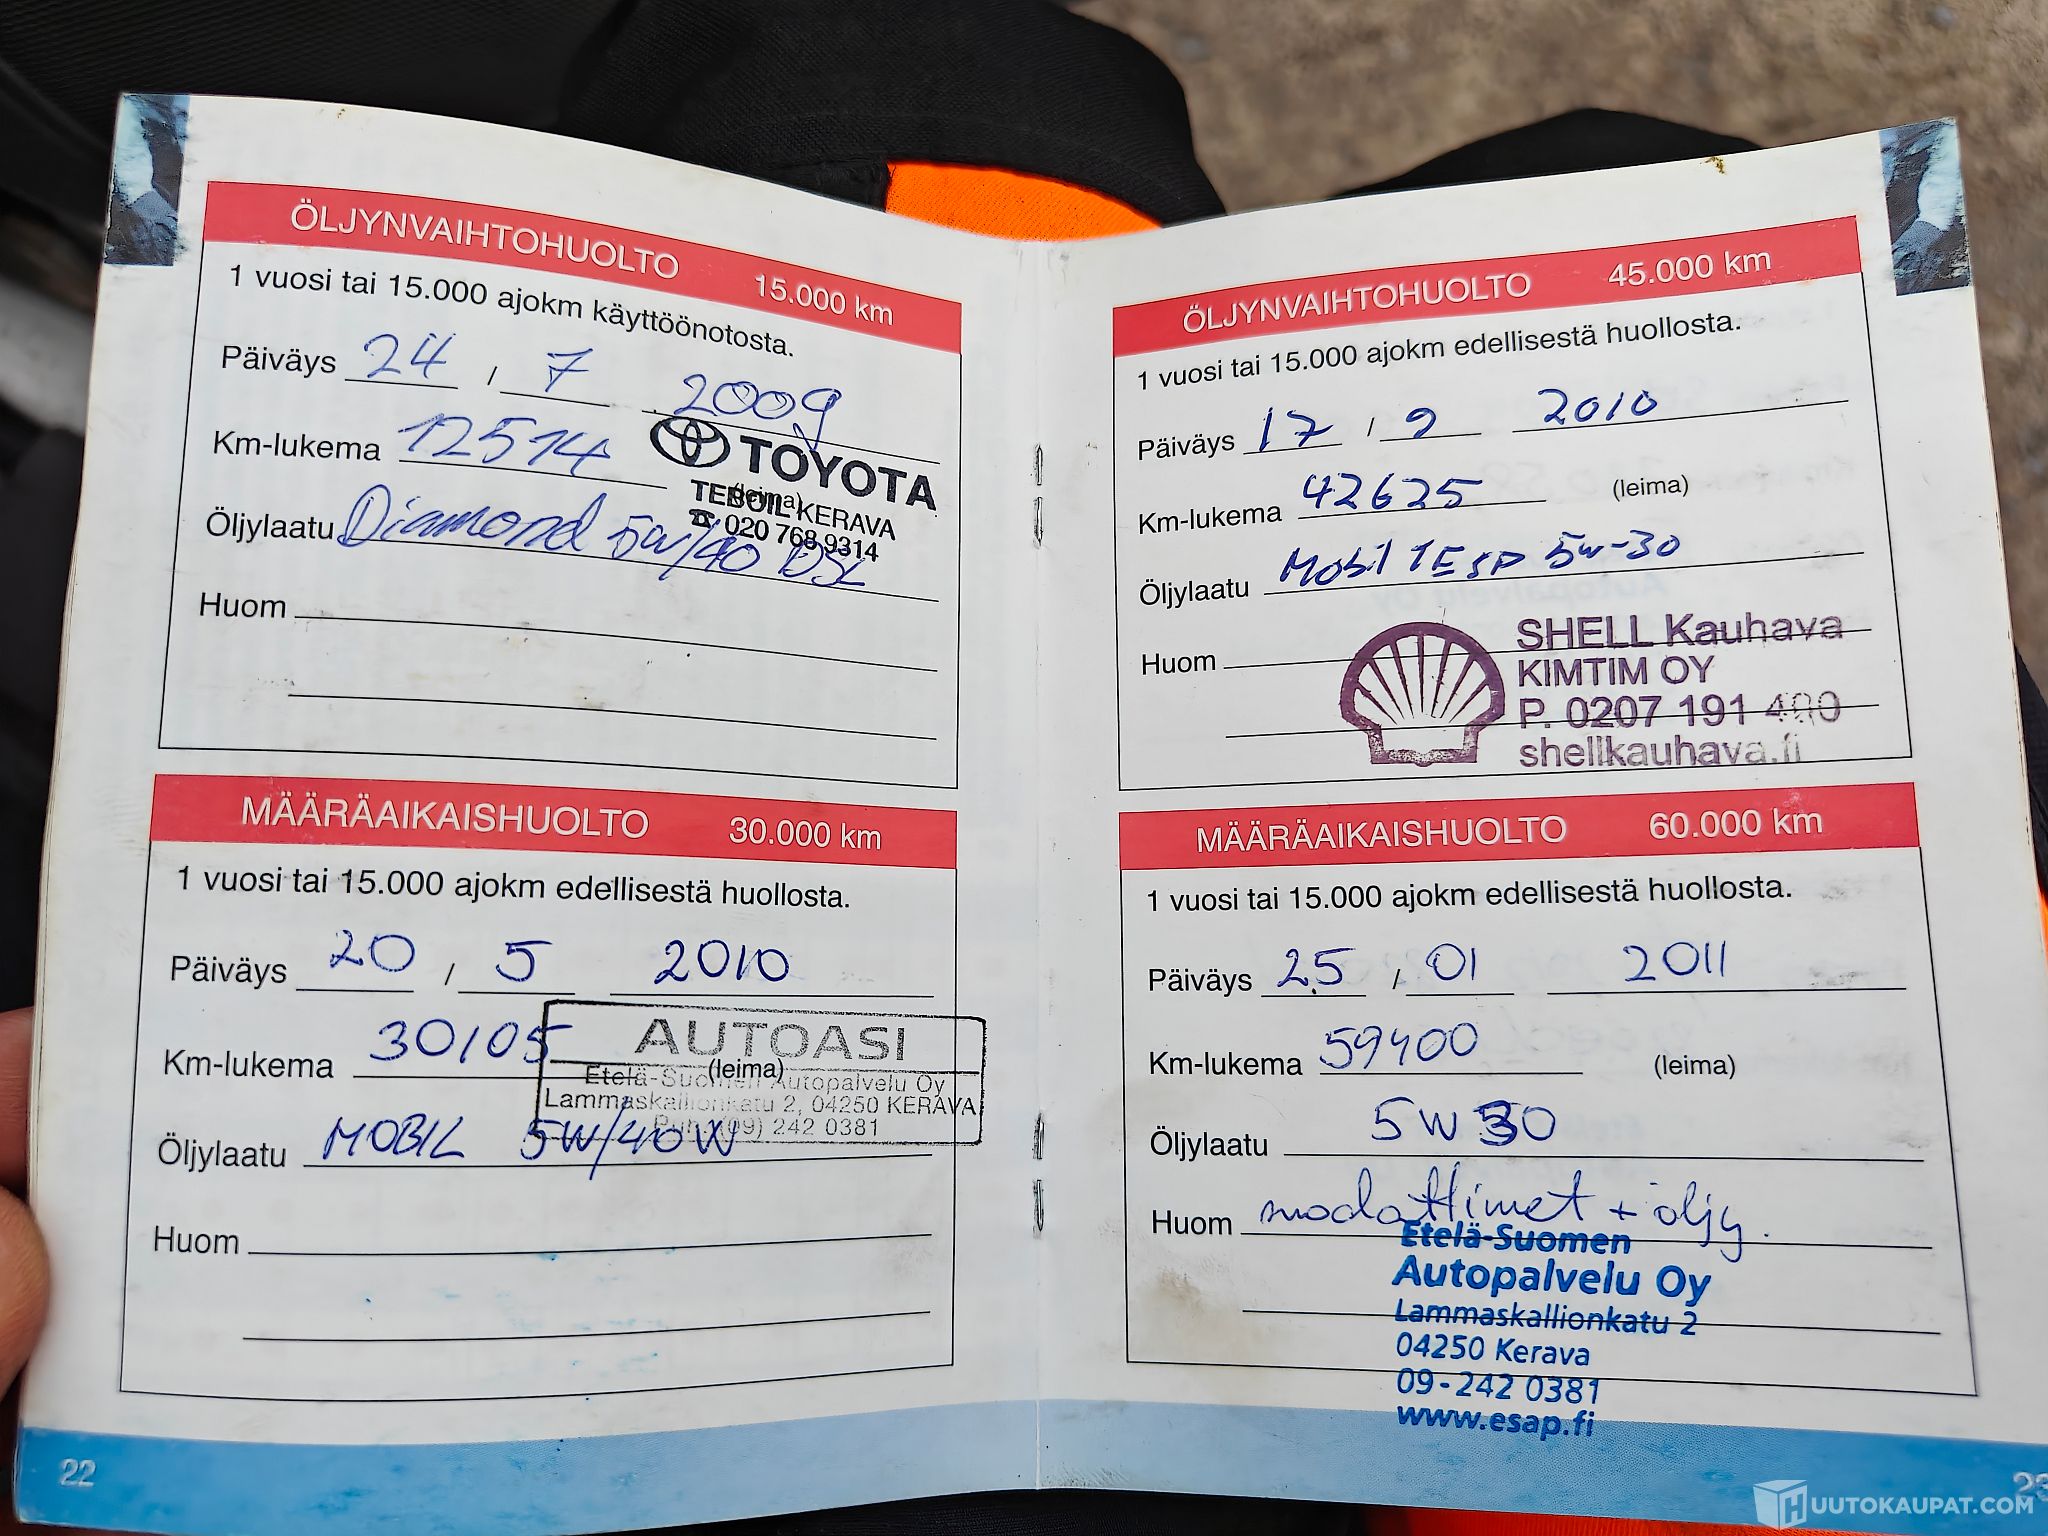 ÖLJYNVAIHTOHUOLTO 15.000 km
1 vuosi tai 15.000 ajokm käyttöönotosta.
Päiväys 24 / 7 2009
Km-lukema 12514
TOYOTA
(leima)
TEBOIL KERAVA
☎ 020 768 9314
Öljylaatu Diamond 5W/40 DSL
Huom
MÄÄRÄAIKAISHUOLTO 30.000 km
1 vuosi tai 15.000 ajokm edellisestä huollosta.
Päiväys 20 / 5 2010
Km-lukema 30105
AUTOASI
(leima)
Etelä-Suomen Autopalvelu Oy
Lammaskallionkatu 2, 04250 KERAVA
Puh. (09) 242 0381
Öljylaatu MOBIL 5W/40W
Huom
22
ÖLJYNVAIHTOHUOLTO 45.000 km
1 vuosi tai 15.000 ajokm edellisestä huollosta.
Päiväys 17 / 9 2010
Km-lukema 42625 (leima)
Öljylaatu Mobil 1 ESP 5W-30
Huom
SHELL Kauhava
KIMTIM OY
P. 0207 191 400
shellkauhava.fi
MÄÄRÄAIKAISHUOLTO 60.000 km
1 vuosi tai 15.000 ajokm edellisestä huollosta.
Päiväys 25 / 01 2011
Km-lukema 59400 (leima)
Öljylaatu 5W30
Huom + öljy.
Etelä-Suomen
Autopalvelu Oy
Lammaskallionkatu 2
04250 Kerava
09-242 0381
www.esap.fi
23
HUUTOKAUPAT.COM